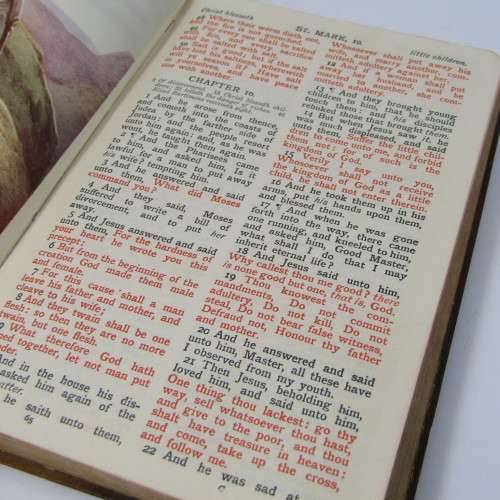 Christ blesseth
ST. MARK, 10.
little children.
48 Where their worm dieth not,
and the fire is not quenched.
49 For every one shall be salted
with fire, and every sacrifice
shall be salted with salt.
50 Salt is good: but if the salt
have lost his saltness, wherewith
will ye season it? Have salt in
yourselves, and have peace
CHAPTER 10.
1 And he arose from thence,
and cometh into the coasts of
Judæa by the farther side of
Jordan: and the people resort
unto him again; and, as he was
wont, he taught them again.
2 And the Pharisees came
to him, and asked him, Is it
lawful for a man to put away
his wife? tempting him.
3 And he answered and said
unto them, What did Moses
command you?
4 And they said, Moses
suffered to write a bill of
divorcement, and to put her
away.
5 And Jesus answered and said
unto them, For the hardness of
your heart he wrote you this
precept:
6 But from the beginning of the
creation God made them male
and female.
7 For this cause shall a man
leave his father and mother, and
cleave to his wife;
8 And they twain shall be one
flesh: so then they are no more
twain, but one flesh.
9 What therefore God hath
joined together, let not man put
asunder.
And in the house his dis-
asked him again of the
matter.
he saith unto them,
68
Whosoever shall put away his
wife, and marry another, com-
mitteth adultery against her.
12 And if a woman shall put
away her husband, and be
married to another, she com-
mitteth adultery.
13 ¶ And they brought young
children to him, that he should
touch them: and his disciples
rebuked those that brought them.
14 But when Jesus saw it, he
was much displeased, and said
unto them, Suffer the little chil-
dren to come unto me, and forbid
them not: for of such is the
kingdom of God.
15 Verily I say unto you,
Whosoever shall not receive
the kingdom of God as a little
child, he shall not enter therein.
16 And he took them up in his
arms, put his hands upon them,
and blessed them.
17 ¶ And when he was gone
forth into the way, there came
one running, and kneeled to him,
and asked him, Good Master,
what shall I do that I may
inherit eternal life?
18 And Jesus said unto him,
Why callest thou me good? there
is none good but one, that is, God.
19 Thou knowest the com-
mandments, Do not commit
adultery, Do not kill, Do not
steal, Do not bear false witness,
Defraud not, Honour thy father
and mother.
20 And he answered and said
unto him, Master, all these have
I observed from my youth.
21 Then Jesus, beholding him,
loved him, and said unto him,
One thing thou lackest: go thy
way, sell whatsoever thou hast,
and give to the poor, and thou
shalt have treasure in heaven:
and come, take up the cross,
and follow me.
22 And he was sad at
C